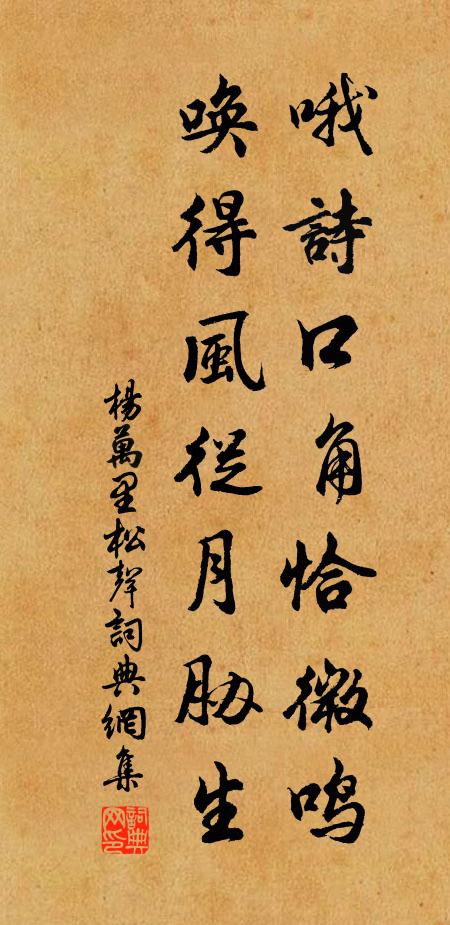 哦詩口角恰微鳴
喚得風從月胁生
楊萬里松聲詞典網集
詞典
网印